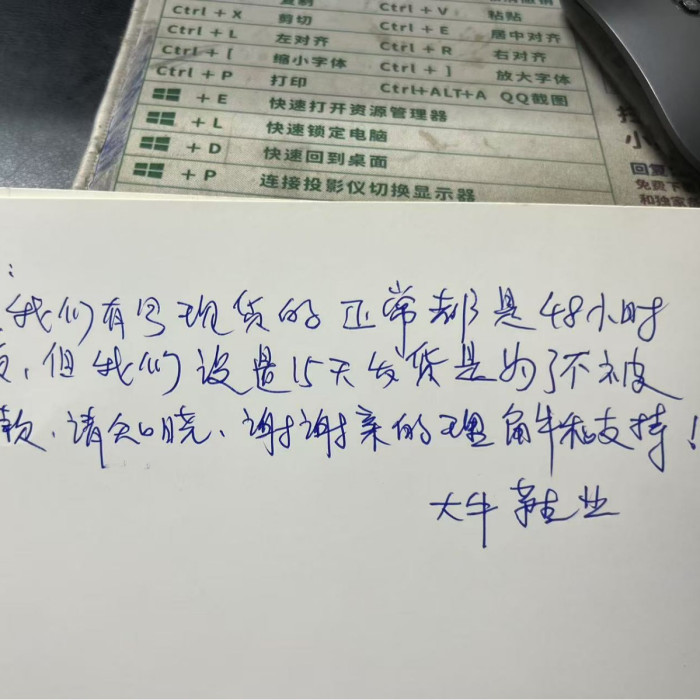 复制
Ctrl + X 剪切 Ctrl + V 粘贴
Ctrl + L 左对齐 Ctrl + E 居中对齐
Ctrl + [ 缩小字体 Ctrl + R 右对齐
Ctrl + P 打印 Ctrl + ] 放大字体
Ctrl+ALT+A QQ截图
+ E 快速打开资源管理器
+ L 快速锁定电脑
+ D 快速回到桌面
+ P 连接投影仪切换显示器
小
回复
免费下
和独家
:
我们有写现货的正常都是48小时
,但我们设置15天发货是为了不被
款,请知晓、谢谢亲的理解和支持!
大牛鞋业